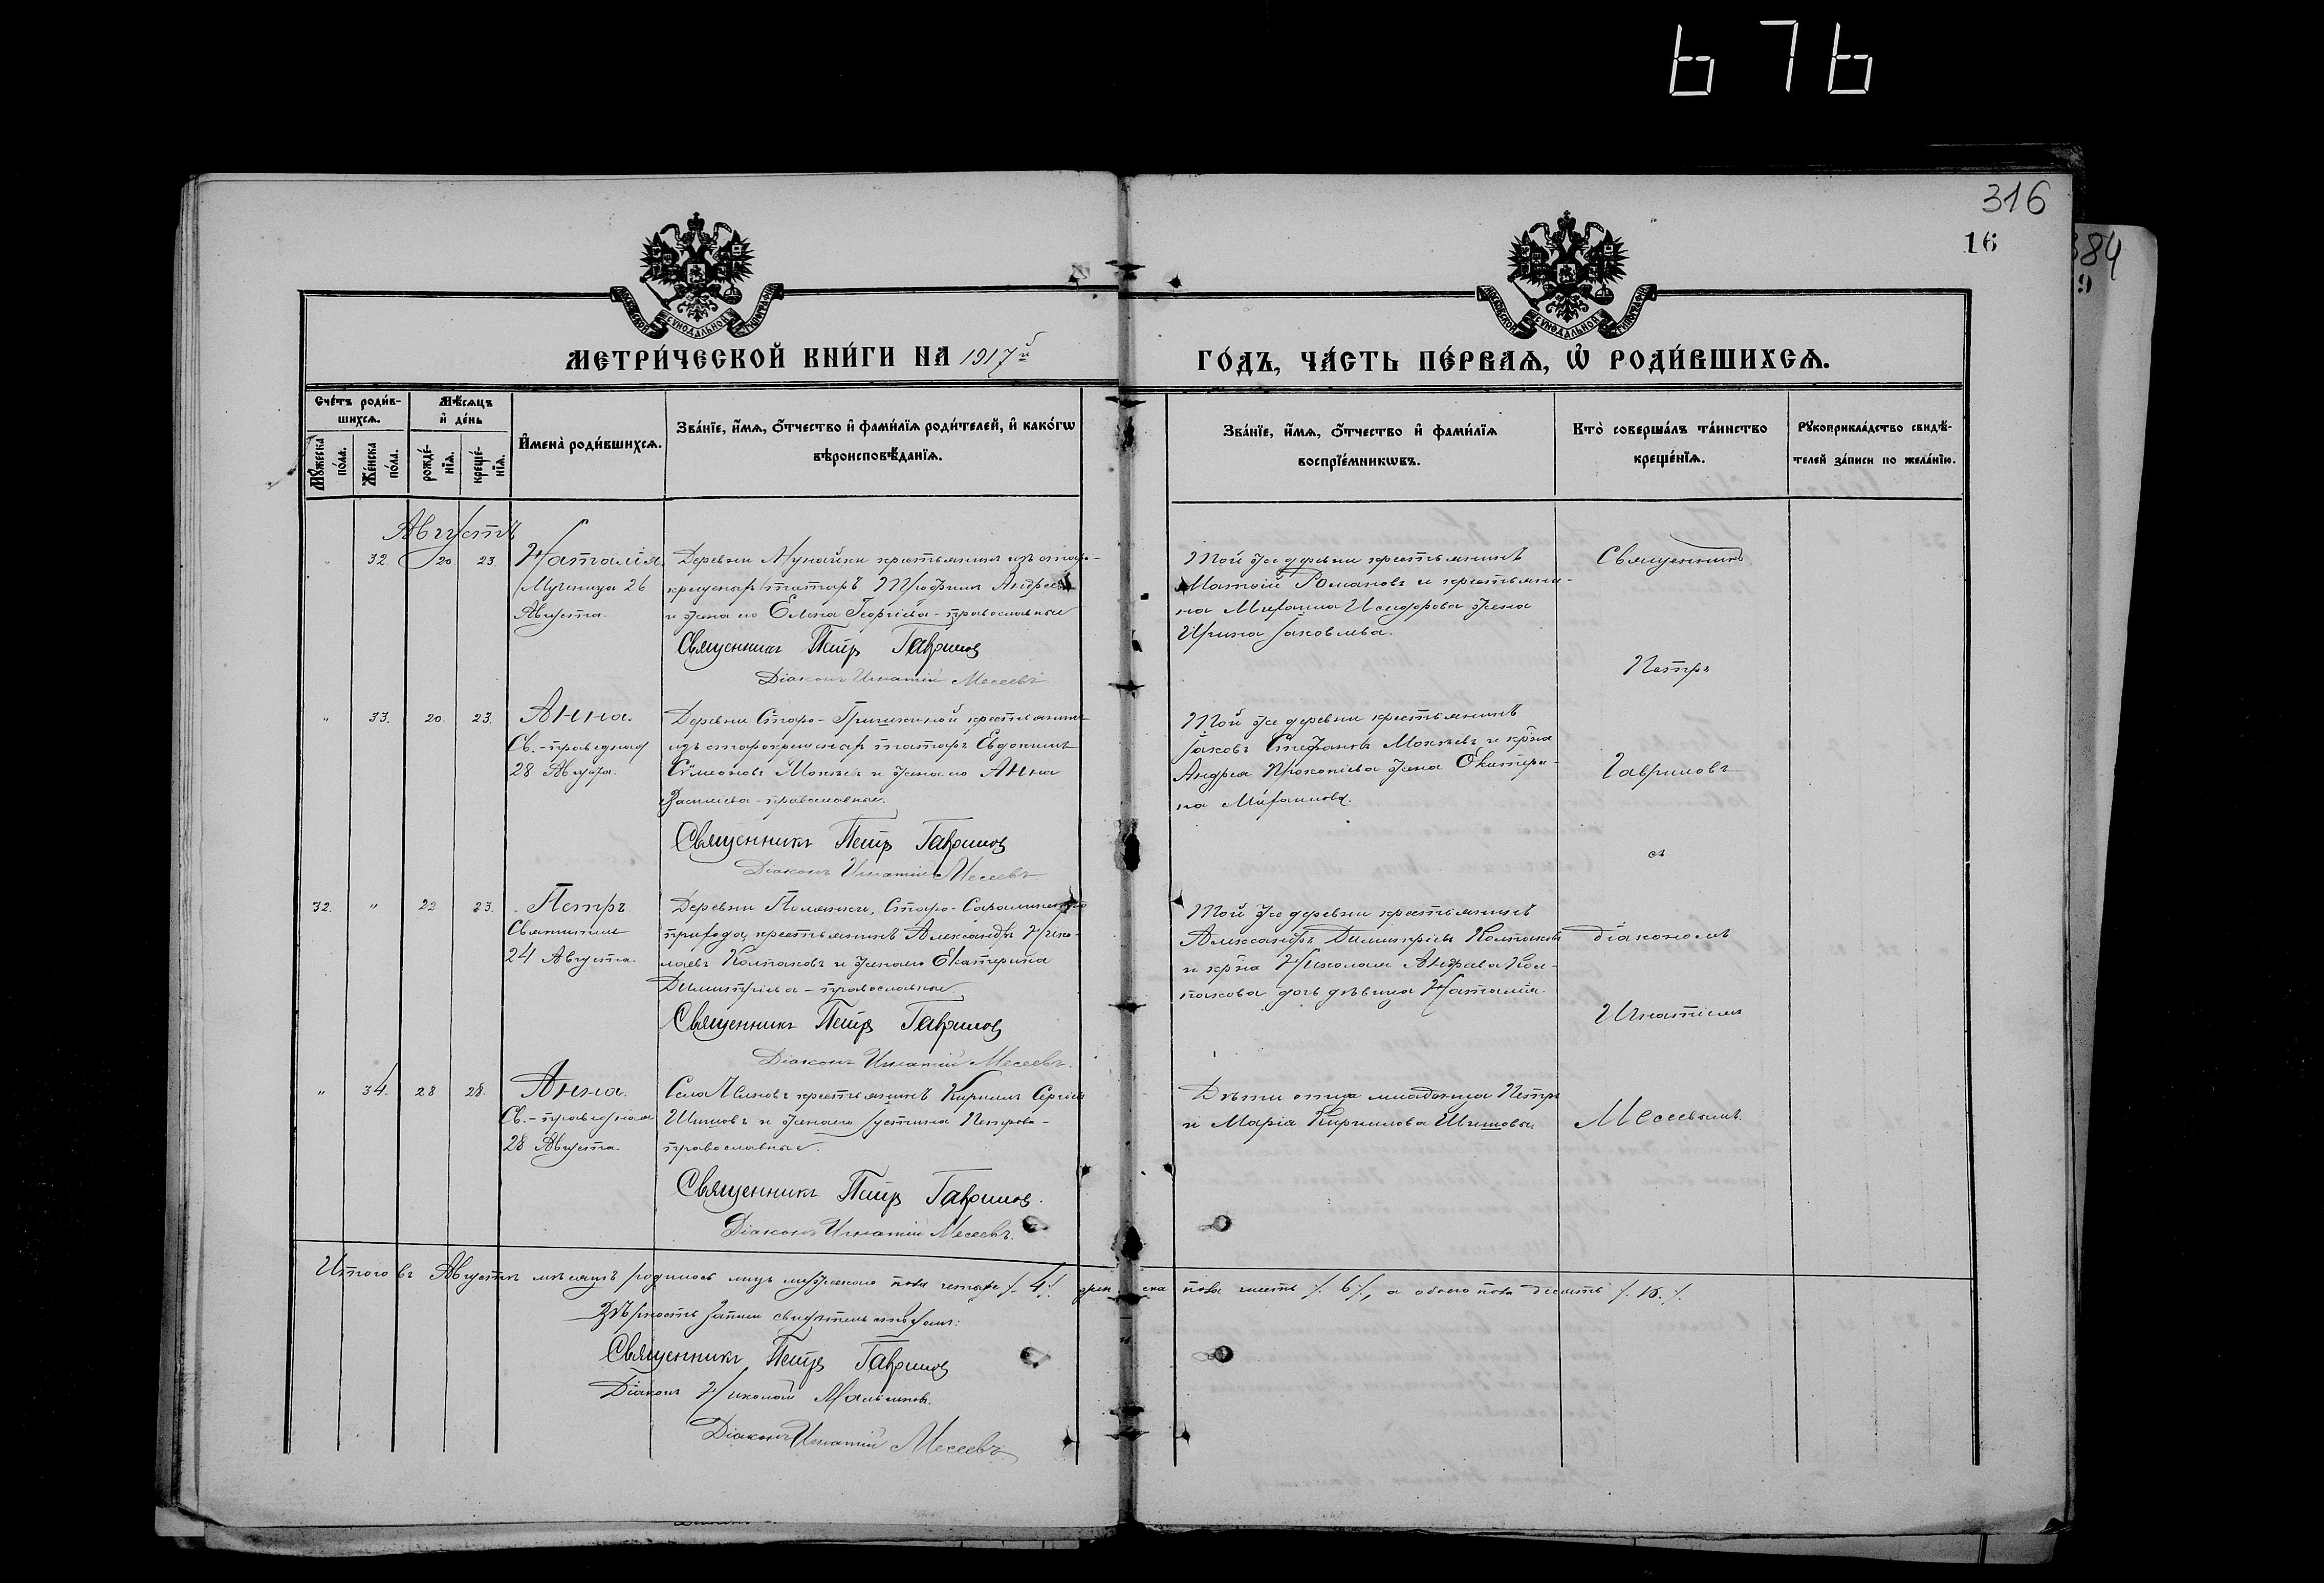 676
316
16
384
9
МОСКОВСКОЙ СУНОДАЛЬНОЙ ТИПОГРАФІИ
МОСКОВСКОЙ СУНОДАЛЬНОЙ ТИПОГРАФІИ
МЕТРИ́ЧЕСКОЙ КНИ́ГИ НА 1917й
ГО́ДЪ, ЧА́СТЬ ПЕ́РВАѦ, Ѡ҆ РОДИ́ВШИХСѦ.
Сче́тъ роди́в-
шихсѧ.
Мꙋжеска по́ла.
Же́нска по́ла.
Мѣ́сѧцъ
и҆ де́нь
рожде́-
нїѧ.
креще́-
нїѧ.
И҆мена̀ роди́вшихсѧ.
Зва́нїе, и҆́мѧ, ѻ҆́тчество и҆ фами́лїѧ роди́телей, и҆ како́гѡ
вѣроисповѣ́данїѧ.
Зва́нїе, и҆́мѧ, ѻ҆́тчество и҆ фами́лїѧ
воспрїе́мникѡвъ.
Кто̀ соверша́лъ та́инство
креще́нїѧ.
Рꙋкоприкла́дство свидѣ́-
телей за́писи по жела́нїю.
Августъ
" 32. 20 23. Наталія
Мученица 26
Августа.
Деревни крестьянинъ изъ старо-
крещеныхъ татаръ Трофимъ Андреевъ
и жена его Елена Георгіева - православные
Священникъ Петръ Гавриловъ
Діаконъ Игнатій Месеевъ
Той же деревни крестьянинъ
Матвій Романовъ и крестьяни-
на Михаила Исидорова жена
Ирина Іаковлева.
Священникъ
Петръ
" 33. 20. 23. Анна.
Св.-праведная
28 Августа.
Деревни Старо-Гришкиной крестьянинъ
изъ старокрещеныхъ татаръ Евдокимъ
Сѵмеоновъ Мокѣевъ и жена его Анна
Василіева - православные.
Священникъ Петръ Гавриловъ
Діаконъ Игнатій Месеевъ
Той же деревни крестьянинъ
Іаковъ Стефановъ Мокѣевъ и кр-на
Андрея Прокопіева жена Екатери-
на Михаилова.
Гавриловъ
съ
32. " 22 23. Петръ
Святитель
24 Августа.
Деревни Полянки, Старо-
прихода, крестьянинъ Александръ Нико-
лаевъ Колпаковъ и жена его Екатерина
Димитріева - православные.
Священникъ Петръ Гавриловъ
Діаконъ Игнатій Месеевъ.
Той же деревни крестьянинъ
Александръ Димитріевъ Колпаковъ
и кр-на Николая Кол-
пакова дочь дѣвица Наталія.
діакономъ
Игнатіемъ
" 34. 28 28. Анна.
Св.-праведная
28 Августа.
Села крестьянинъ Кириллъ Сергіевъ
и жена его Іустина Петрова -
православные.
Священникъ Петръ Гавриловъ.
Діаконъ Игнатій Месеевъ.
Дѣти отца младенца Петръ
и Марія Кириллова
Месеевымъ.
Итого въ Августѣ мѣсяцѣ родилось лицъ мужескаго пола четыре /. 4 /. женска пола шесть /. 6 /., а обоего пола десять /. 10. /.
Вѣрность записи свидѣтельствуемъ:
Священникъ Петръ Гавриловъ
Діаконъ Николай Мальчиковъ.
Діаконъ Игнатій Месеевъ